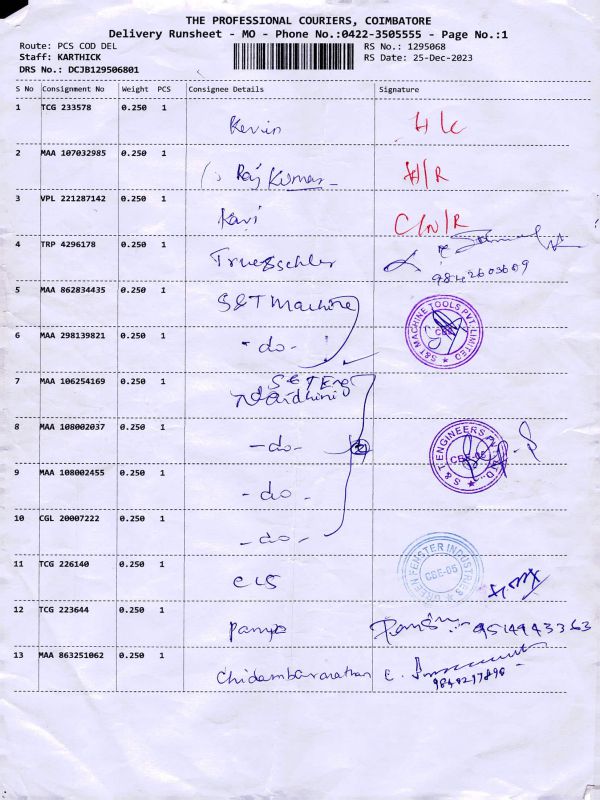 THE PROFESSIONAL COURIERS, COIMBATORE
Delivery Runsheet - MO - Phone No.:0422-3505555 - Page No.:1
Route: PCS COD DEL RS No.: 1295068
Staff: KARTHICK RS Date: 25-Dec-2023
DRS No.: DCJB129506801
S No Consignment No Weight PCS Consignee Details Signature
1 TCG 233578 0.250 1 Kevin H/C
2 MAA 107032985 0.250 1 Raj Kumar H/R
3 VPL 221287142 0.250 1 Kavi C/N/R
4 TRP 4296178 0.250 1 9842603609
5 MAA 862834435 0.250 1 S&T Machine S&T MACHINE TOOLS PVT. LIMITED
6 MAA 298139821 0.250 1 -do-
7 MAA 106254169 0.250 1 S&T Eng
8 MAA 108002037 0.250 1 -do- S & T ENGINEERS CBE-05
9 MAA 108002455 0.250 1 -do-
10 CGL 20007222 0.250 1 -do-
11 TCG 226140 0.250 1 FENSTER INDUSTRIES CBE-05
12 TCG 223644 0.250 1 9514943363
13 MAA 863251062 0.250 1 Chidambaranathan